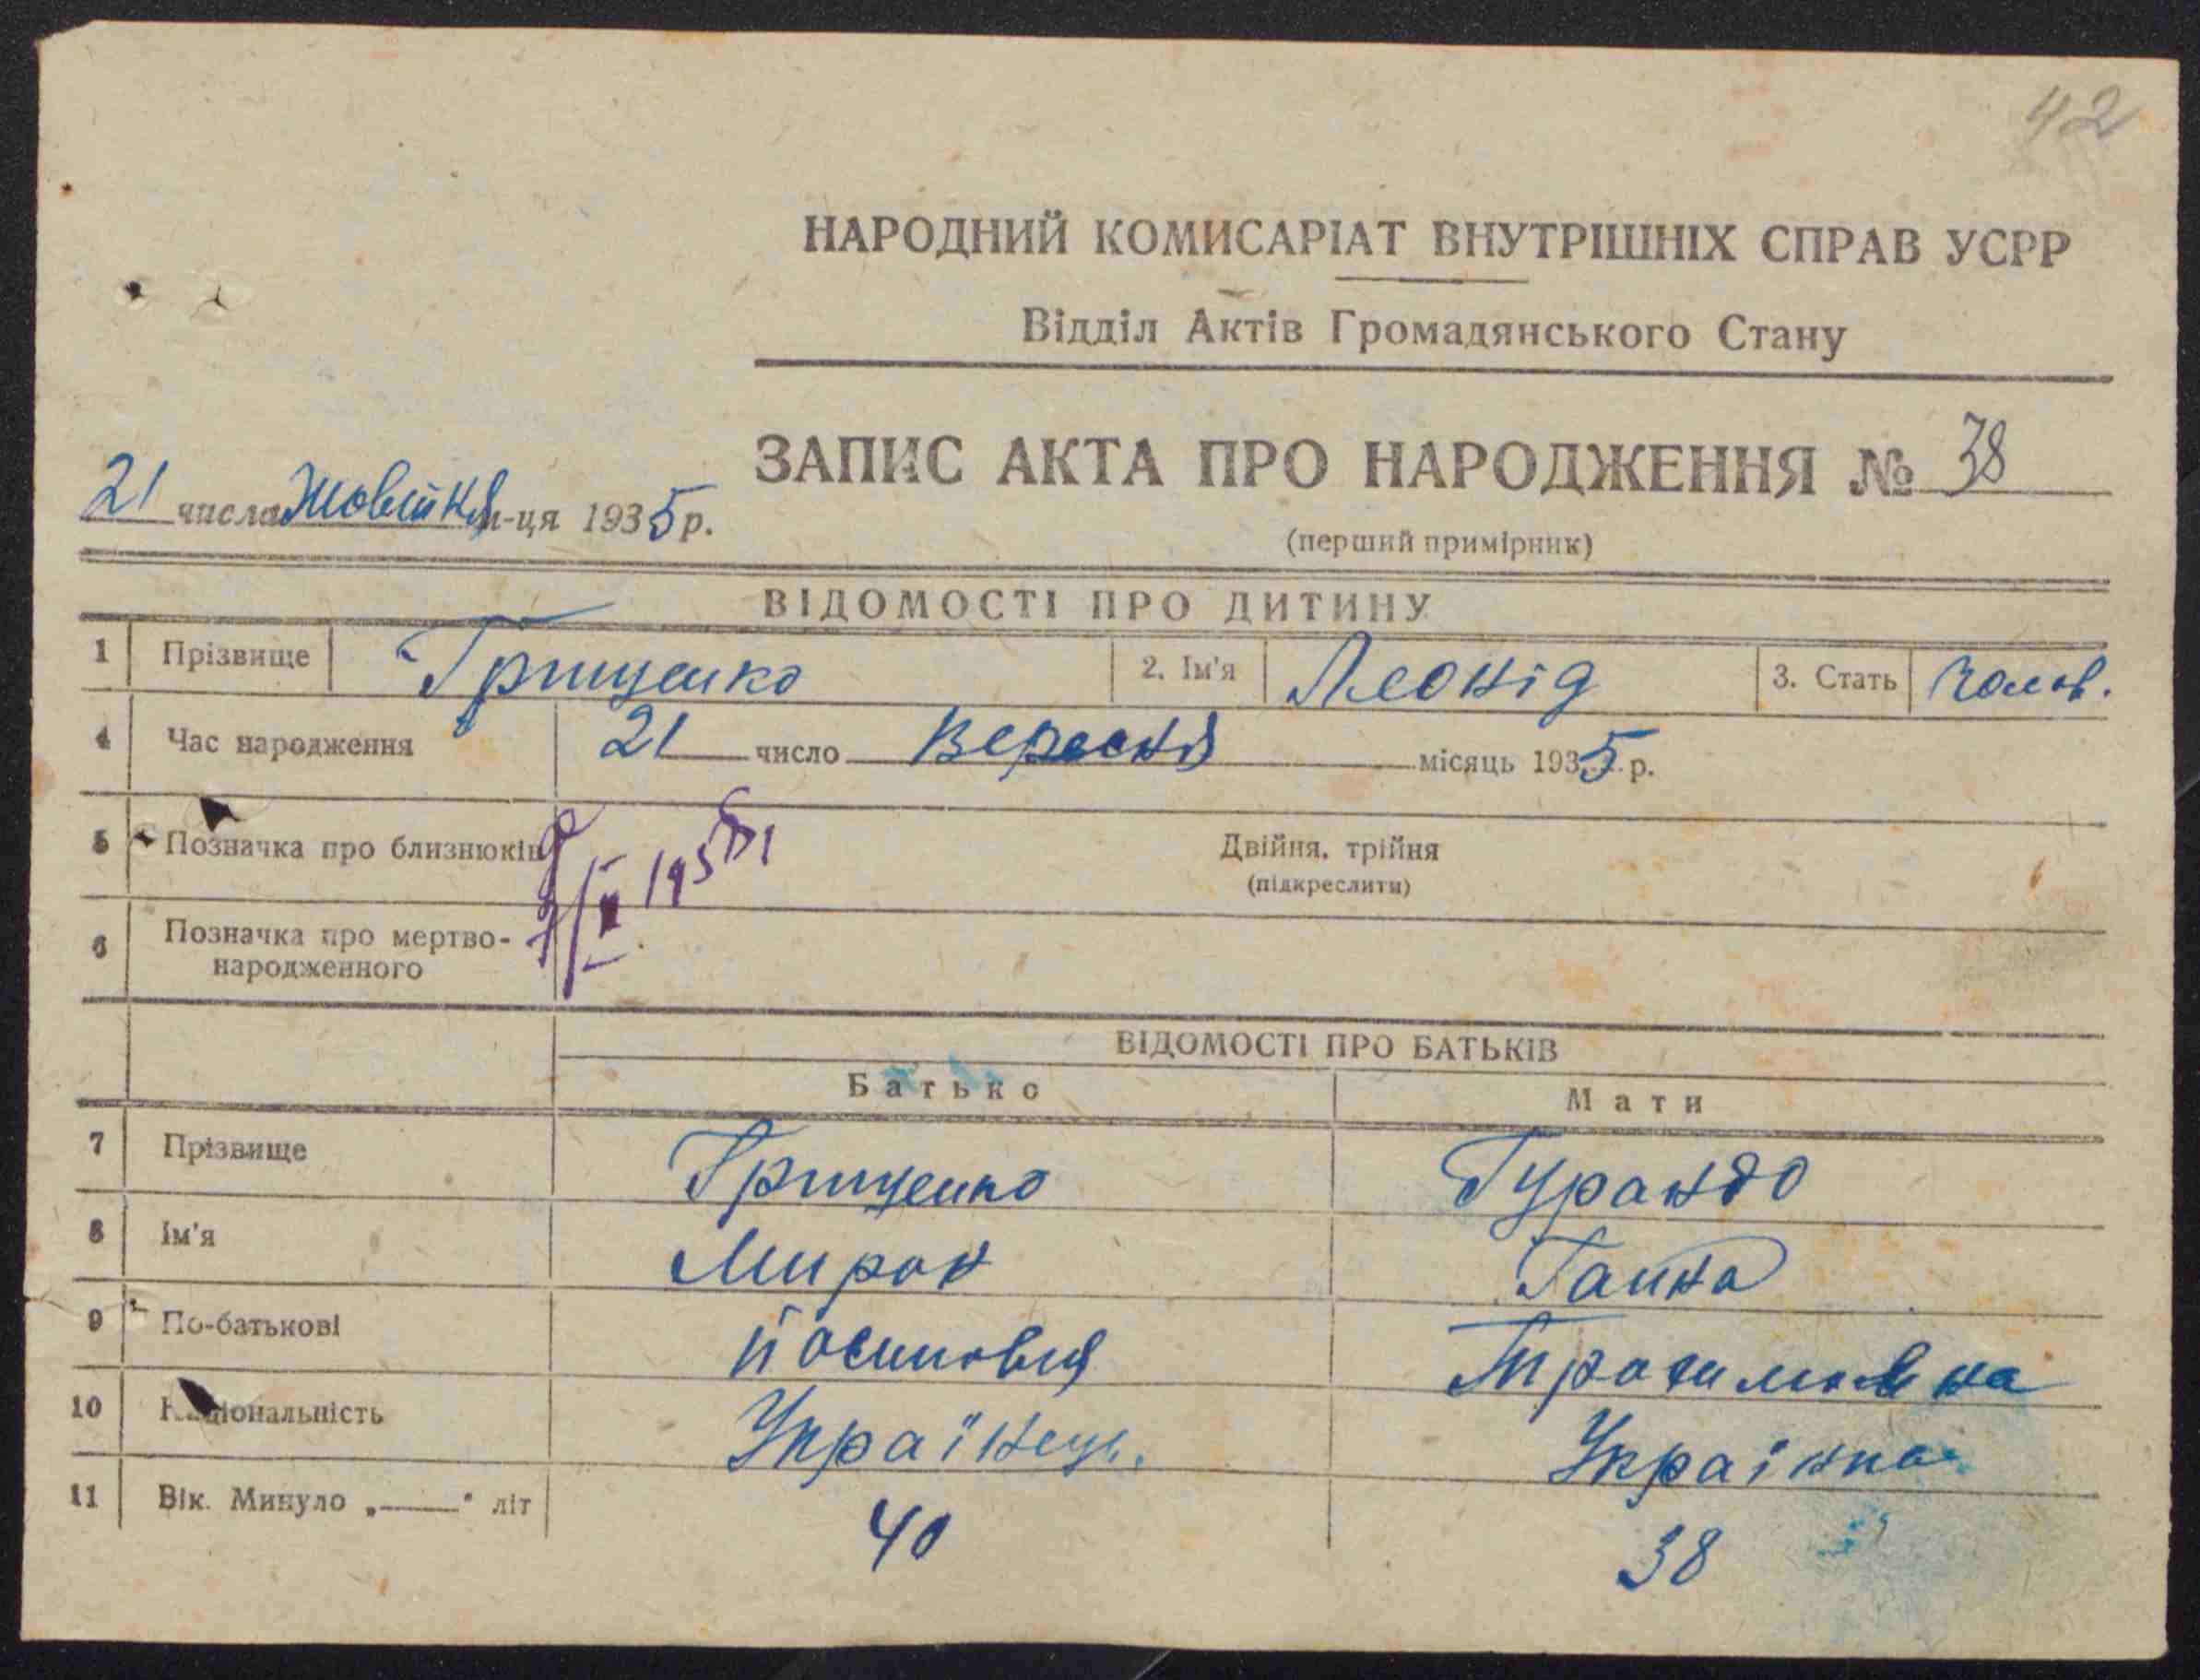 42
НАРОДНИЙ КОМИСАРІАТ ВНУТРІШНІХ СПРАВ УСРР
Відділ Актів Громадянського Стану
ЗАПИС АКТА ПРО НАРОДЖЕННЯ № 38
21 числа Жовтня м-ця 1935 р.
(перший примірник)
ВІДОМОСТІ ПРО ДИТИНУ
1 Прізвище Грищенко 2. Ім'я Леонід 3. Стать чолов.
4 Час народження 21 число Вересня місяць 1935 р.
5 Позначка про близнюків Двійня, трійня
(підкреслити)
6 Позначка про мертво-
народженного
ВІДОМОСТІ ПРО БАТЬКІВ
Батько Мати
7 Прізвище Грищенко Гурандо
8 Ім'я Мирон Ганна
9 По-батькові Йосипович Трохимовна
10 Національність Українець. Українка
11 Вік. Минуло „—" літ 40 38